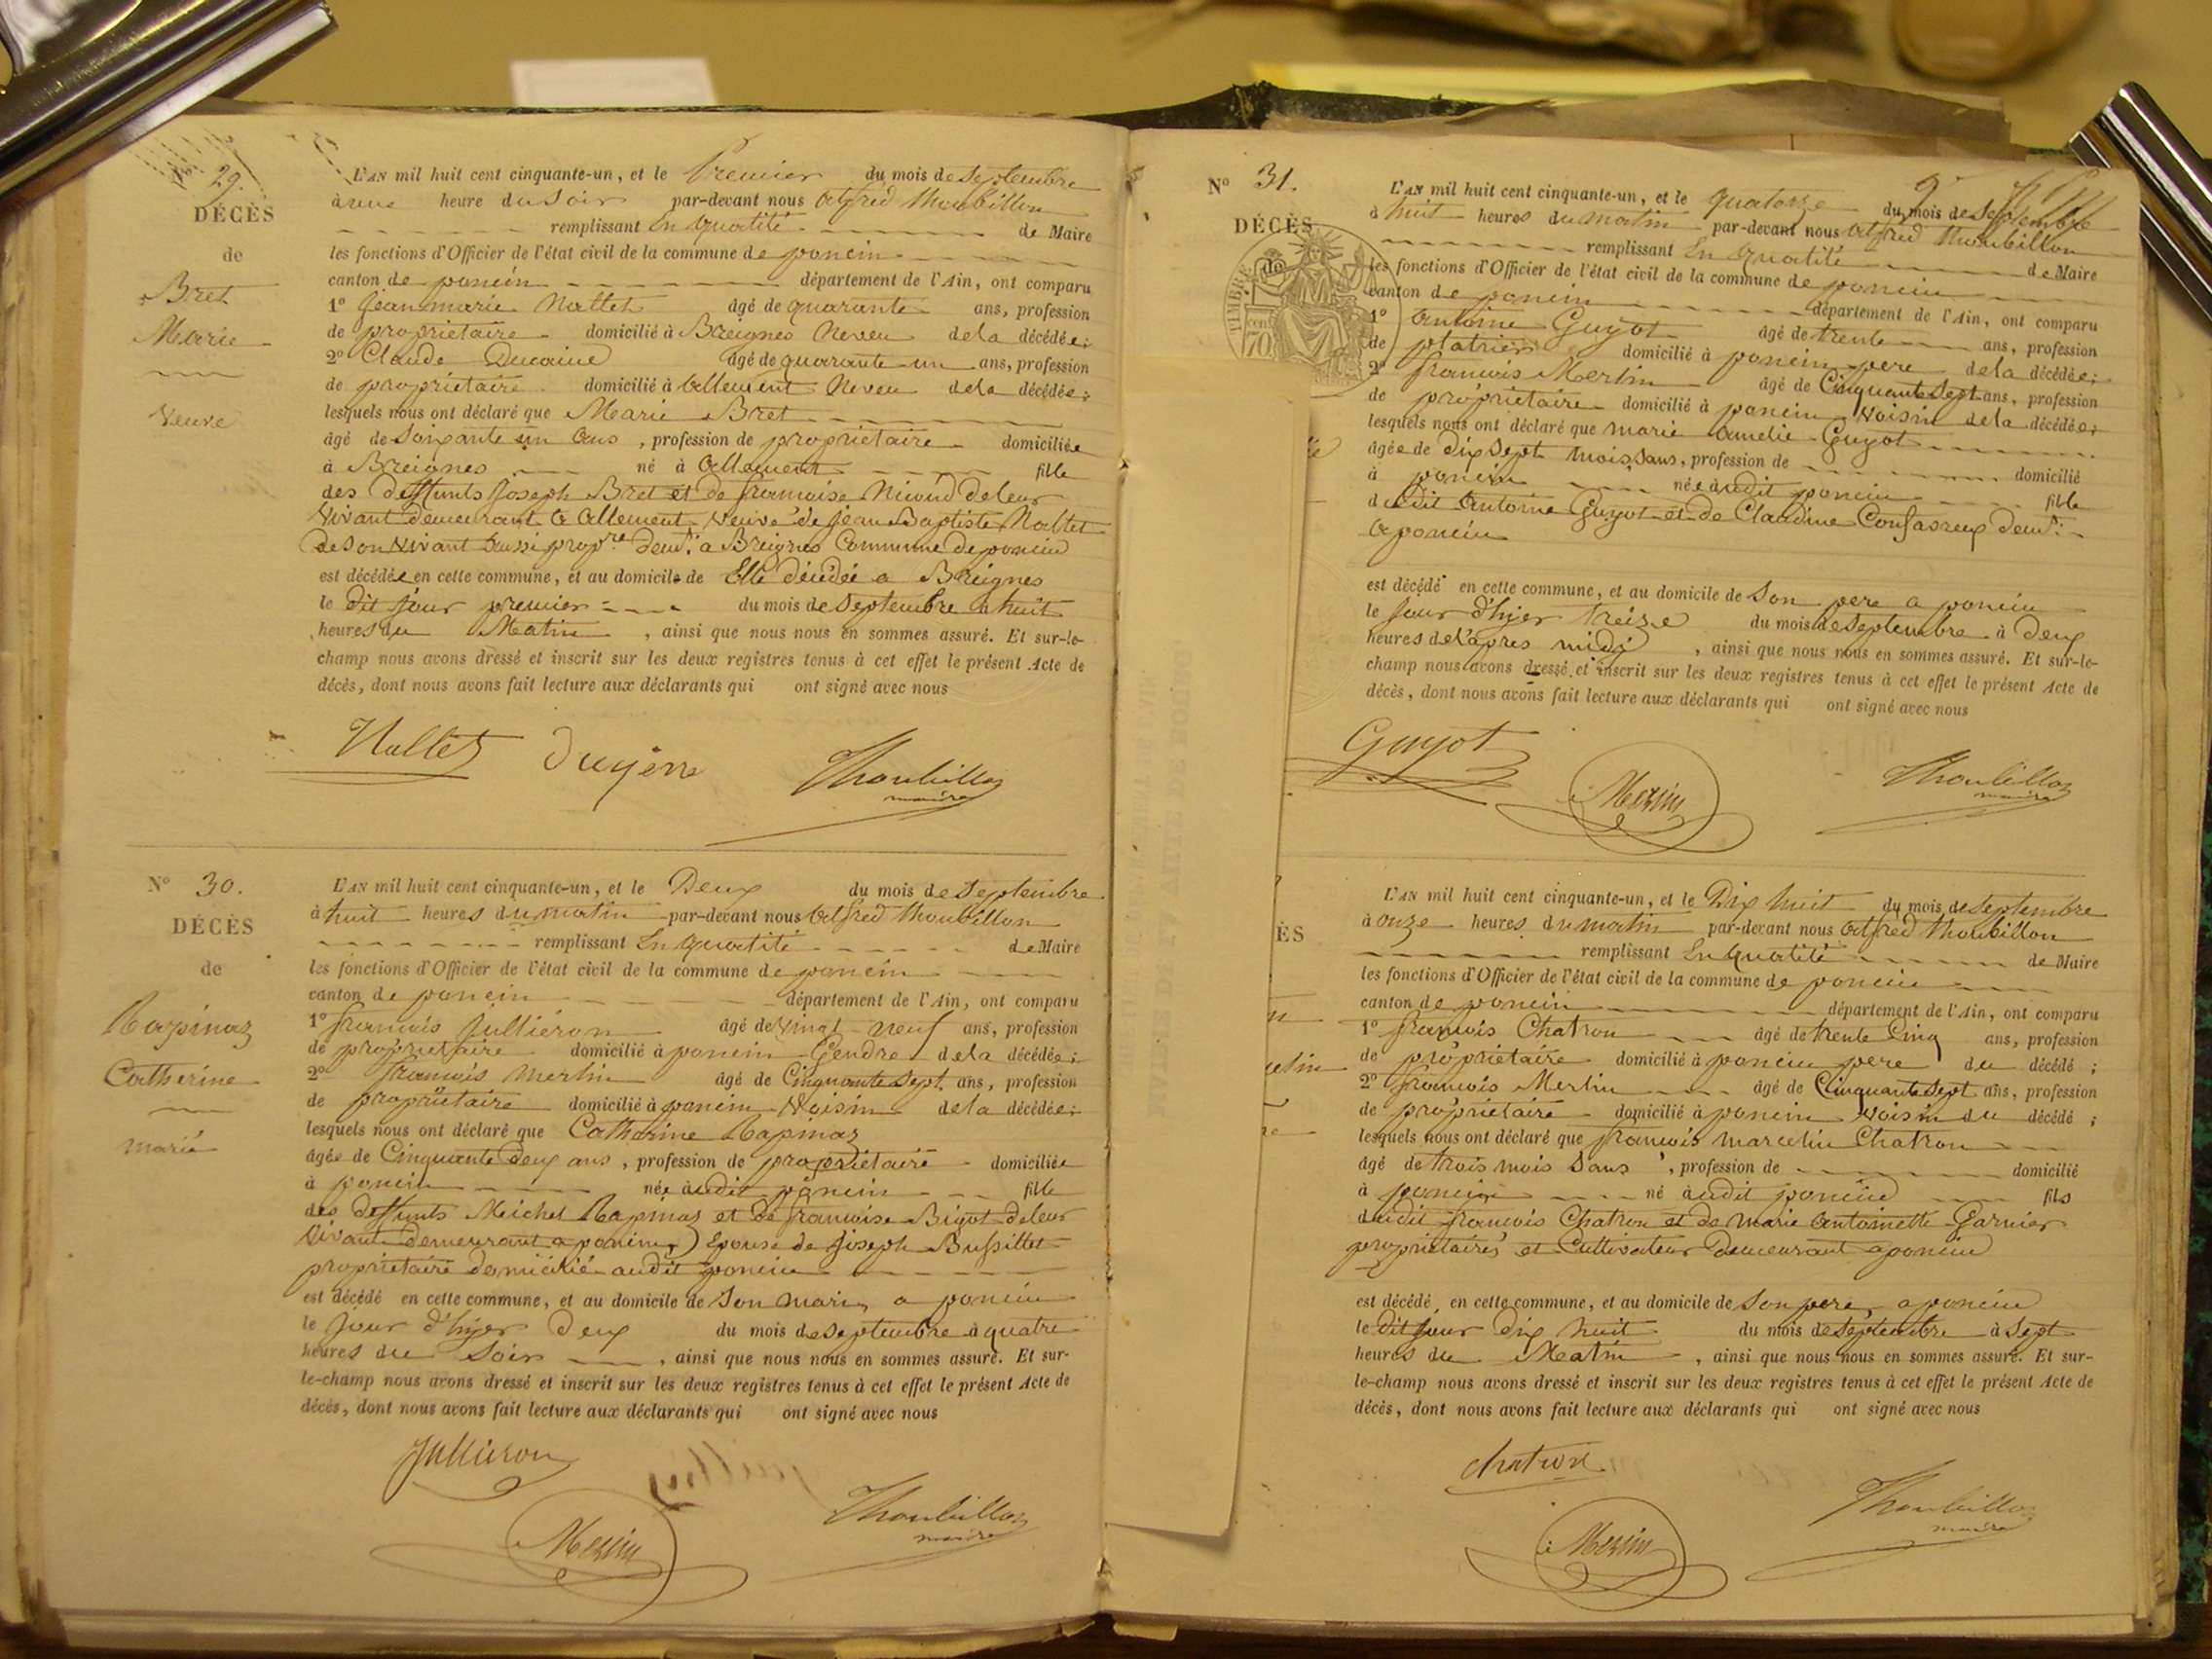 No 29.
DÉCÈS
de
Bret
Marie
Veuve
L'AN mil huit cent cinquante-un, et le Premier du mois de Septembre
à une heure du Soir par-devant nous Alfred Thoubillon
remplissant En qualité de Maire
les fonctions d'Officier de l'état civil de la commune de poncin
canton de poncin département de l'Ain, ont comparu
1º Jean marie Nallet âgé de quarante ans, profession
de propriétaire domicilié à Breignes Neveu de la décédée;
2º Claude âgé de quarante un ans, profession
de propriétaire domicilié à allement Neveu de la décédée;
lesquels nous ont déclaré que Marie Bret
âgé de Soixante un ans, profession de propriétaire domiciliée
à Breignes né à allement fille
des deffunts Joseph Bret et de francoise Nicoud de leur
Vivant demeurant a allement, Veuve de Jean Baptiste Nallet
de Son Vivant aussi propre demt a Breignes Commune de poncin
est décédée en cette commune, et au domicile de Elle décédée a Breignes
le dit Jour premier du mois de Septembre à huit
heures du Matin, ainsi que nous nous en sommes assuré. Et sur-le-
champ nous avons dressé et inscrit sur les deux registres tenus à cet effet le présent Acte de
décès, dont nous avons fait lecture aux déclarants qui ont signé avec nous
Nallet Thoubillon
maire
No 30.
DÉCÈS
de
Rapinaz
Catherine
marié
L'AN mil huit cent cinquante-un, et le Deux du mois de Septembre
à huit heures du matin par-devant nous Alfred Thoubillon
remplissant En qualité de Maire
les fonctions d'Officier de l'état civil de la commune de poncin
canton de poncin département de l'Ain, ont comparu
1º francois Julliéron âgé de Vingt neuf ans, profession
de propriétaire domicilié à poncin Gendre de la décédée;
2º francois Merlin âgé de Cinquante Sept ans, profession
de propriétaire domicilié à poncin Voisin de la décédée;
lesquels nous ont déclaré que Catherine Rapinaz
âgée de Cinquante deux ans, profession de propriétaire domiciliée
à poncin née à audit poncin fille
des deffunts Meichel Rapinaz et de francoise Bigot de leur
Vivant demeurant a poncin, Epouse de Joseph Bussillet
propriétaire domicilié audit poncin
est décédé en cette commune, et au domicile de Son mari, a poncin
le Jour d'hyer Deux du mois de Septembre à quatre
heures du Soir, ainsi que nous nous en sommes assuré. Et sur-
le-champ nous avons dressé et inscrit sur les deux registres tenus à cet effet le présent Acte de
décès, dont nous avons fait lecture aux déclarants qui ont signé avec nous
Julliéron
Merlin Thoubillon
maire
No 31.
DÉCÈS
de
TIMBRE
70
L'AN mil huit cent cinquante-un, et le quatorze du mois de Septembre
à huit heures du matin par-devant nous Alfred Thoubillon
remplissant En qualité de Maire
les fonctions d'Officier de l'état civil de la commune de poncin
canton de poncin département de l'Ain, ont comparu
1º antoine Guyot âgé de trente ans, profession
de platrier domicilié à poncin pere de la décédée;
2º francois Merlin âgé de Cinquante Sept ans, profession
de propriétaire domicilié à poncin Voisin de la décédée;
lesquels nous ont déclaré que marie amelie Guyot
âgée de dix Sept mois, sans, profession de domicilié
à poncin née à audit poncin fille
dudit antoine Guyot et de Claudine demt
a poncin
est décédé en cette commune, et au domicile de Son pere a poncin
le Jour d'hyer treize du mois de Septembre à Deux
heures de l'apres midy, ainsi que nous nous en sommes assuré. Et sur-le-
champ nous avons dressé et inscrit sur les deux registres tenus à cet effet le présent Acte de
décès, dont nous avons fait lecture aux déclarants qui ont signé avec nous
Guyot
Merlin Thoubillon
maire
ÈS
L'AN mil huit cent cinquante-un, et le Dix huit du mois de Septembre
à onze heures du matin par-devant nous Alfred Thoubillon
remplissant En qualité de Maire
les fonctions d'Officier de l'état civil de la commune de poncin
canton de poncin département de l'Ain, ont comparu
1º francois Chatron âgé de trente Cinq ans, profession
de propriétaire domicilié à poncin pere du décédé;
2º francois Merlin âgé de Cinquante Sept ans, profession
de propriétaire domicilié à poncin Voisin du décédé;
lesquels nous ont déclaré que francois marcelin Chatron
âgé de trois mois Sans, profession de domicilié
à poncin né à audit poncin fils
dudit francois Chatron et de marie antoinette Garnier
propriétaires et Cultivateur Demeurant a poncin
est décédé en cette commune, et au domicile de Son pere, a poncin
le dit Jour dix huit du mois de Septembre à Sept
heures du Matin, ainsi que nous nous en sommes assuré. Et sur-
le-champ nous avons dressé et inscrit sur les deux registres tenus à cet effet le présent Acte de
décès, dont nous avons fait lecture aux déclarants qui ont signé avec nous
chatron
Merlin Thoubillon
maire